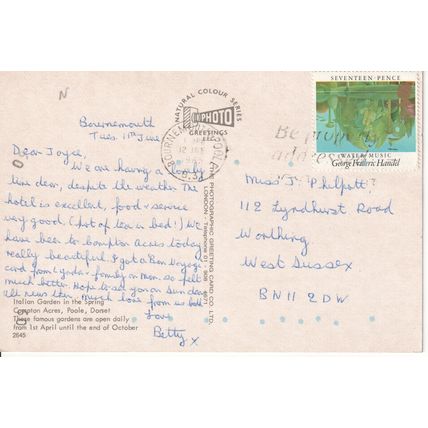 N
Bournemouth
Tues. 11th June
Dear Joyce,
We are having a lovely
time dear, despite the weather. The
hotel is excellent, food & service
very good. (pot of tea in bed!) We
have been to Compton Acres today
really beautiful. I got a Bon Voyage
card from Lynda & family on Mon. so felt
much better. Hope to see you on Sunday
all news then. Much love from us both
Love
Betty x
Italian Garden in the Spring
Compton Acres, Poole, Dorset
These famous gardens are open daily
from 1st April until the end of October
2645
NATURAL COLOUR SERIES
PHOTO
GREETINGS
THE PHOTOGRAPHIC GREETING CARD CO. LTD.
LONDON · Telephone 01
BOURNEMOUTH POOLE
12 JNE
Be properly
addressed
SEVENTEEN · PENCE
WATER MUSIC
George Frideric Handel
Miss J. Philpott
112 Lyndhurst Road
Worthing
West Sussex
BN11 2DW